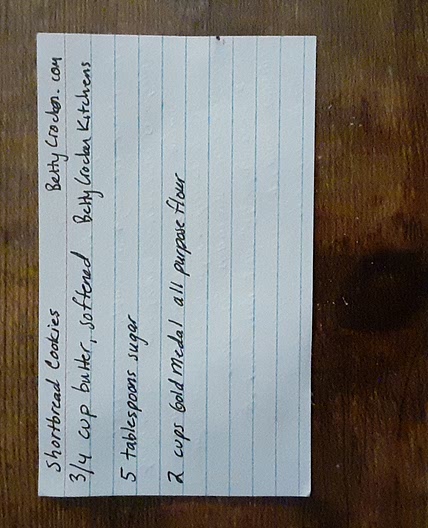 Shortbread Cookies Betty Crocker.com
3/4 cup butter, softened Betty Crocker Kitchens
5 tablespoons sugar
2 cups Gold Medal all purpose flour